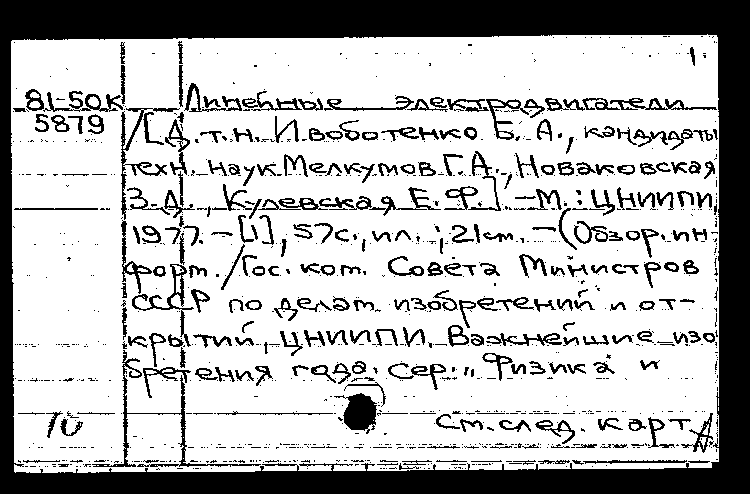 1.
81-50К Линейные электродвигатели
5879 /[Д.т.н. Ивоботенко Б. А., кандидаты
техн. наук Мелкумов Г.А., Новаковская
З.Д., Кулевская Е. Ф.]. -М.: ЦНИИПИ,
1977. - [1], 57с., ил.; 21см. - (Обзор. ин-
форм. /Гос. ком. Совета Министров
СССР по делам изобретений и от-
крытий, ЦНИИПИ. Важнейшие изо
бретения года. Сер.,, Физика и
10 См. след. карт.